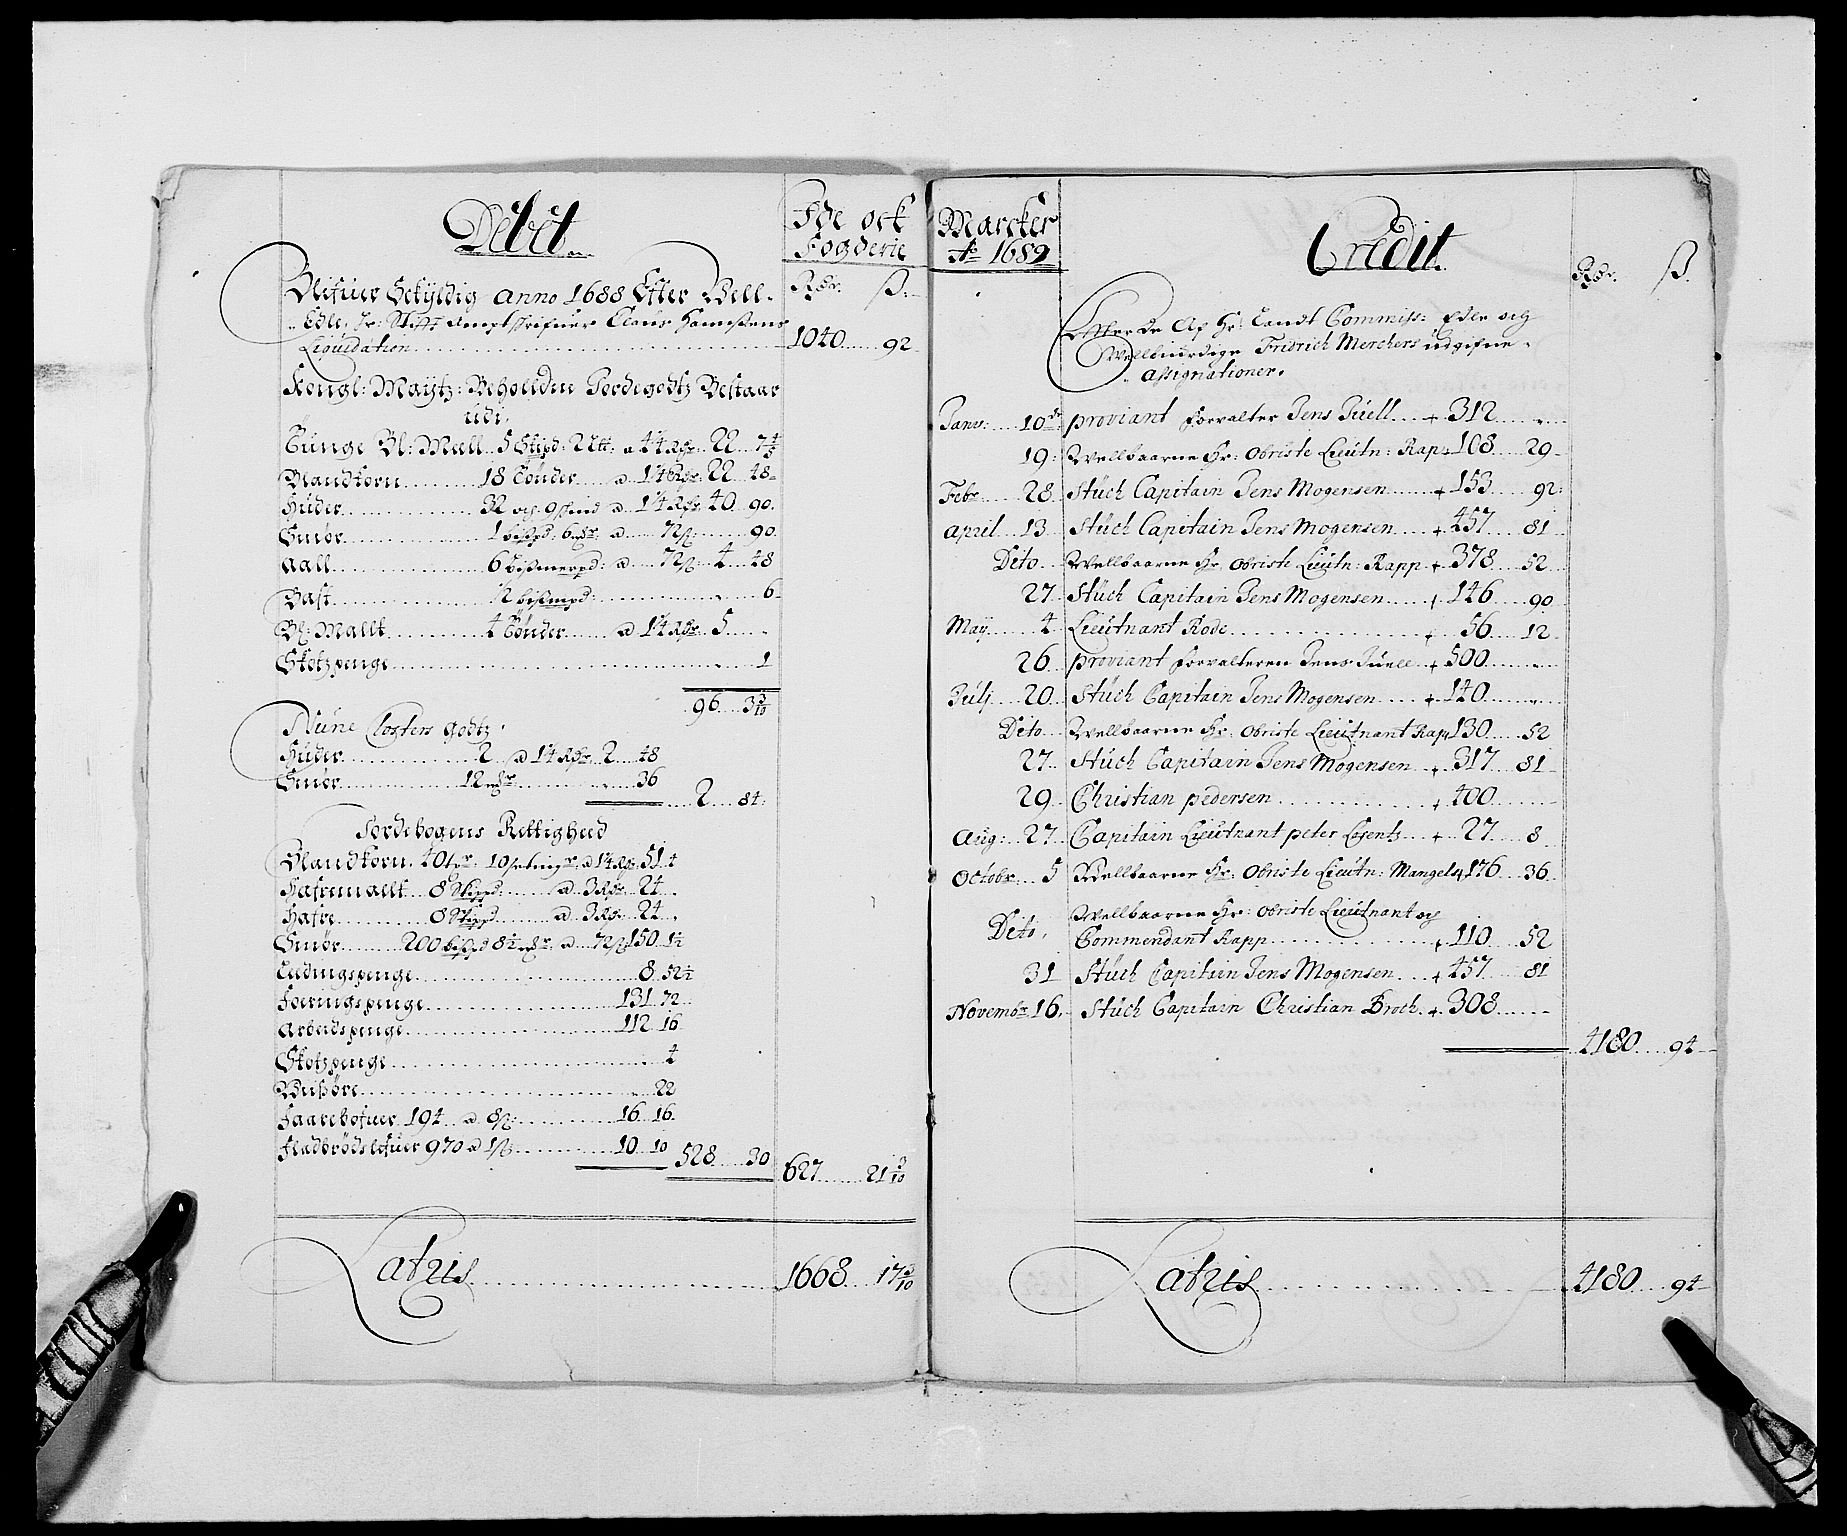 Debet
Ide ock
Fogderie
Blifuer Schyldig Anno 1688 Efter Vell-
Edle Hr: Stifft Amptschrifuer Claus Hanssens Rdr. ß:
Liquidation 1040 92
Kongl: Maytz: Beholldne Jordegodtz Bestaar
udi.
Tunge Bl: Meell 5 Skipd: 2 Ltt: a 4¼ Rdr 22 7 4/5
Blandkorn 18 Tönder a 1¼ Rdr 22 48
Huder 32 och 9 skind a 1¼ Rdr 40 90
Smör 1 bißpd: 6 mkr a 72 ß 90
Aall 6 bißmerpd: a 72 ß 4 48
Bast ½ bißmpd: 6
Bl: Mallt 4 Tönder a 1¼ Rdr 5
Skotzpenge 1
96 3 3/10
Nune Closters Godtz
Huder 2 a 1¼ Rdr 2 48
Smör 12 mkr 36
2 84
Jordebogens Rettigheed
Blandkorn 40 tdr 10 setingr a 1¼ Rdr 51 4
Hafremallt 8 Skippd a 3 Rdr 24
Hafre 8 Skippd a 3 Rdr 24
Smör 200 bißpd 8½ mkr a 72 ß 150 1½
Leedingspenge 8 52½
Foeringspenge 131 72
Arbeidspenge 112 16
Skotzpenge 4
Vissöre 22
Faarebofuer 194 a 8 ß 16 16
Fladbrödslefuer 970 a 1 ß 10 10
528 30
627 21 3/10
Latris 1668 17 3/10
Marcker
Ao 1689
Credit
Rdr. ß.
Efter De Af Hr: Landt Commiss: Edle og
Wellbiurdige Fridrich Merckers udgifne
Assignationer.
Janv: 10de proviant forvalter Jens Juell 312
19 Wellbaarne Hr: Obriste Lieutn: Rap 108 29
Febr 28 Stuch Capitain Jens Mogensen 153 92
April 13 Stuch Capitain Jens Mogensen 457 81
Dito Wellbaarne Hr Obriste Lieutn: Rapp 378 52
27 Stuch Capitain Jens Mogensen 146 90
May 4 Lieutnant Rode 56 12
26 proviant forvalteren Jens Juell 500
Julj 20 Stuch Capitain Jens Mogensen 140
Dito Wellbaarne Hr: Obriste Lieutnant Rap 130 52
27 Stuch Capitain Jens Mogensen 317 81
29 Christian pedersen 400
Aug: 27 Capitain Lieutnant peter Lorentz 27 8
Octobr: 5 Wellbaarne Hr: Obriste Lieutn: Mangels 176 36
Dito Wellbaarne Hr: Obriste Lieutnant og
Commendant Rapp 110 52
31 Stuch Capitain Jens Mogensen 457 81
Novembr 16 Stuch Capitain Christian Broch 308
4180 94
Latris 4180 94